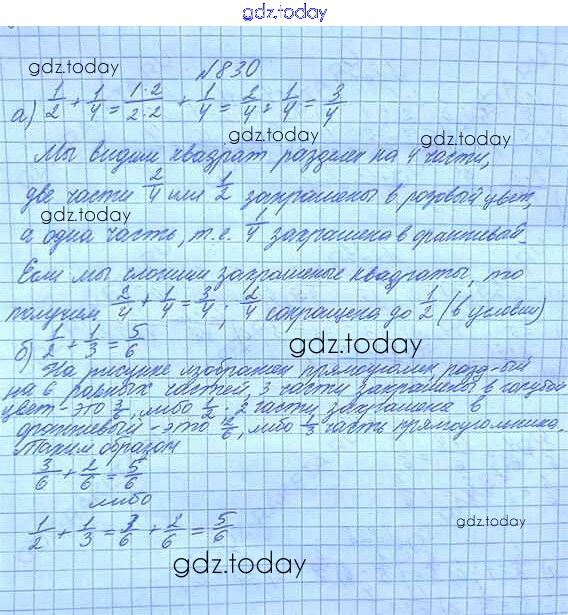 gdz.today
gdz.today
№830
а) 1/2 + 1/4 = 1·2/2·2 + 1/4 = 2/4 + 1/4 = 3/4
gdz.today
gdz.today
Мы видим квадрат разделен на 4 части,
две части 2/4 или 1/2 закрашены в розовый цвет,
gdz.today
а одна часть, т.е. 1/4 закрашена в оранжевый.
Если мы сложим закрашеные квадраты, то
получим 2/4 + 1/4 = 3/4; 2/4 сокращена до 1/2 (в условии)
б) 1/2 + 1/3 = 5/6
gdz.today
На рисунке изображен прямоуголик разд-ый
на 6 равных частей, 3 части закрашены в голубой
цвет - это 3/6, либо 1/2; 2 части закрашена в
оранжевый - это 2/6, либо 1/3 часть прямоугольника.
Таким образом
3/6 + 2/6 = 5/6
либо
1/2 + 1/3 = 3/6 + 2/6 = 5/6
gdz.today
gdz.today